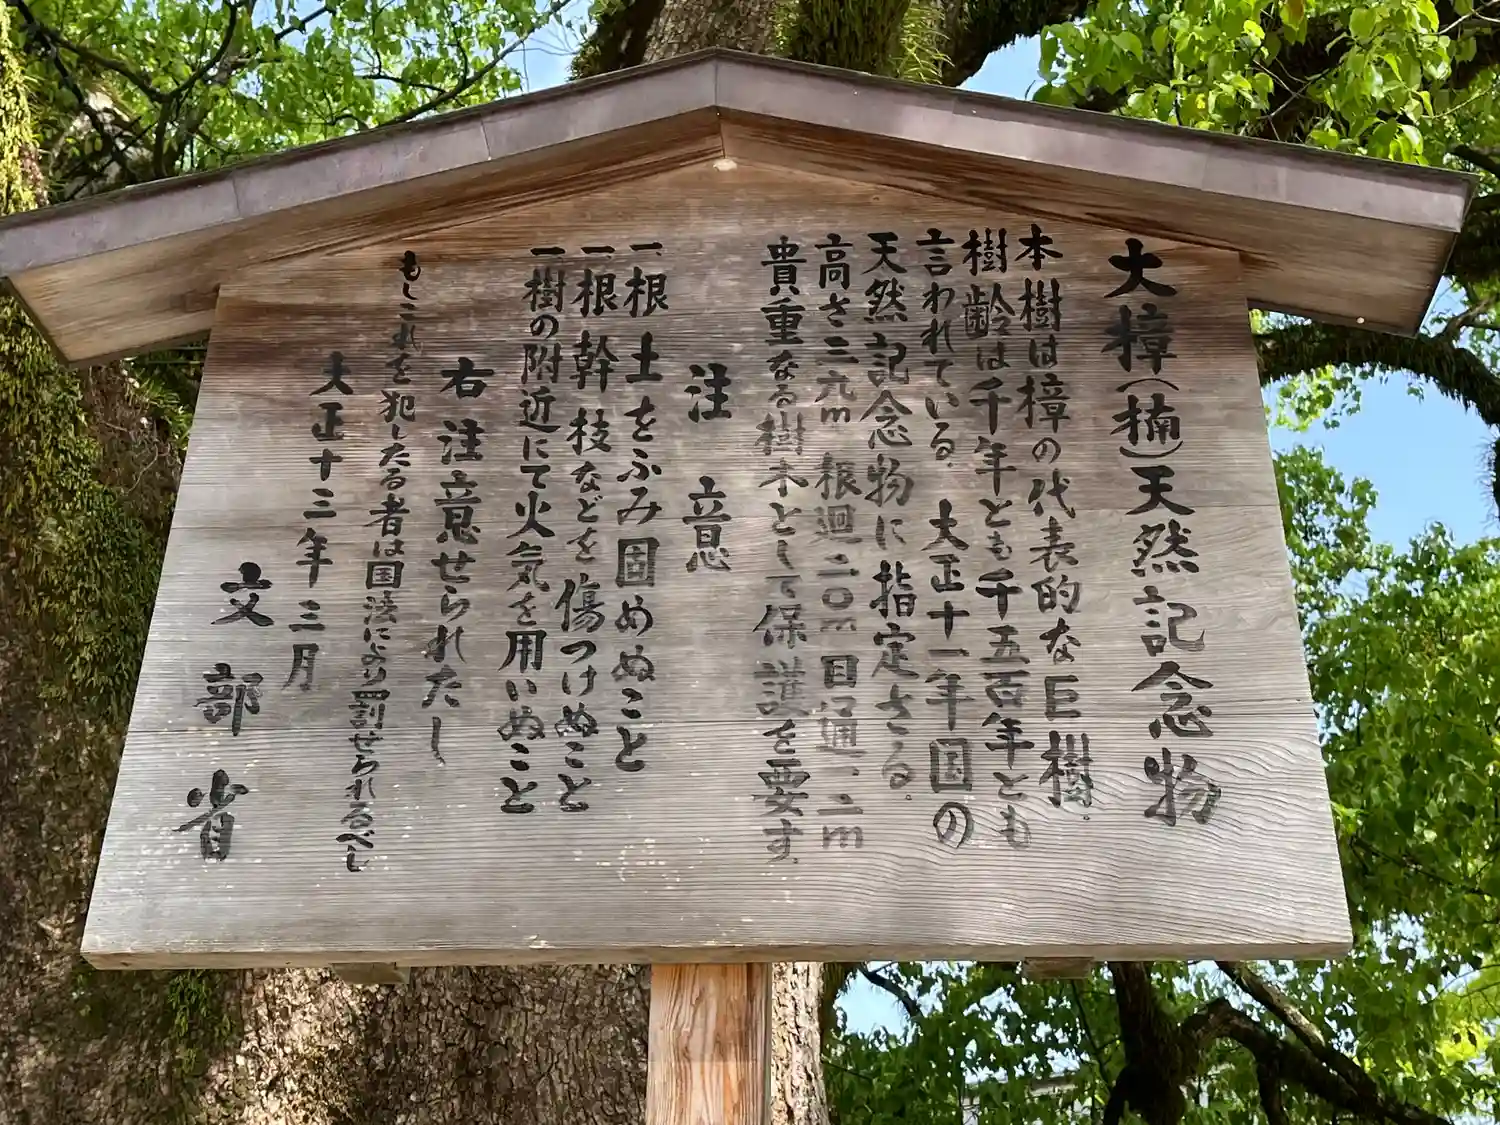 大樟(楠)天然記念物
本樹は樟の代表的な巨樹.
樹齢は千年とも千五百年とも
言われている. 大正十一年国の
天然記念物に指定さる.
高さ三六m 根廻二0m目通一二m
貴重なる樹木として保護を要す.
注意
一、根土をふみ固めぬこと
一、根幹枝などを傷つけぬこと
一、樹の附近にて火気を用いぬこと
右注意せられたし
もしこれを犯したる者は国法により罰せられるべし
大正十三年三月
文部省